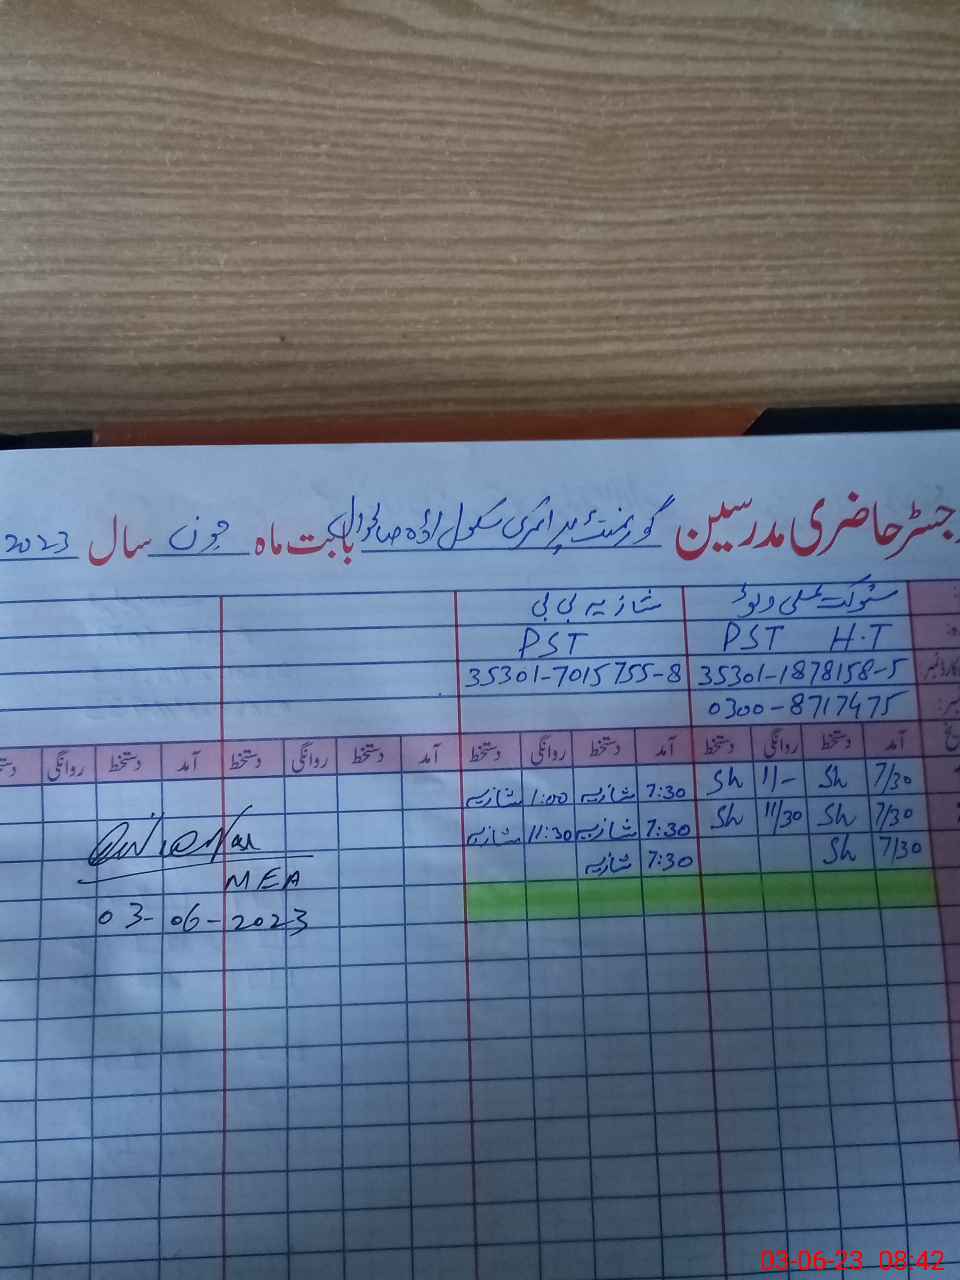 رجسٹر حاضری مدرسین گورنمنٹ پرائمری سکول اڈہ صالحوال بابت ماہ جون سال 2023
شوکت علی وٹو شازیہ بی بی
PST H.T PST
35301-1878158-5 35301-7015755-8
0300-8717475
آمد دستخط روانگی دستخط آمد دستخط روانگی دستخط آمد دستخط روانگی دستخط آمد دستخط روانگی
7/30 Sh 11/- Sh 7:30 شازیہ 1:00 شازیہ
7/30 Sh 11/30 Sh 7:30 شازیہ 11:30 شازیہ
7/30 Sh 7:30 شازیہ
MEA
03-06-2023
03-06-23 08:42